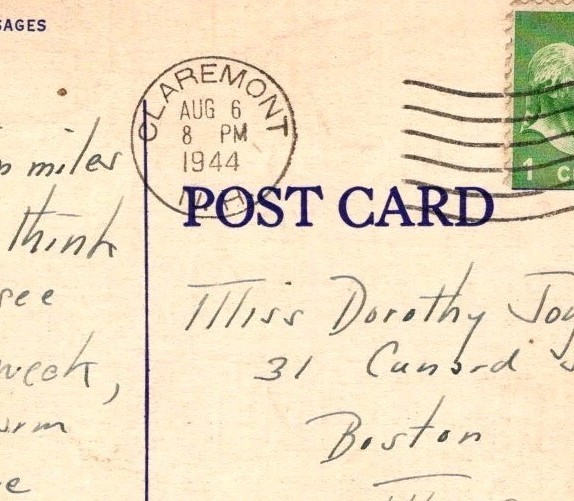 SAGES
CLAREMONT
AUG 6
8 PM
1944
N.H.
1 C
POST CARD
miles
think
see
week,
Miss Dorothy Joy
31 Cunard
Boston